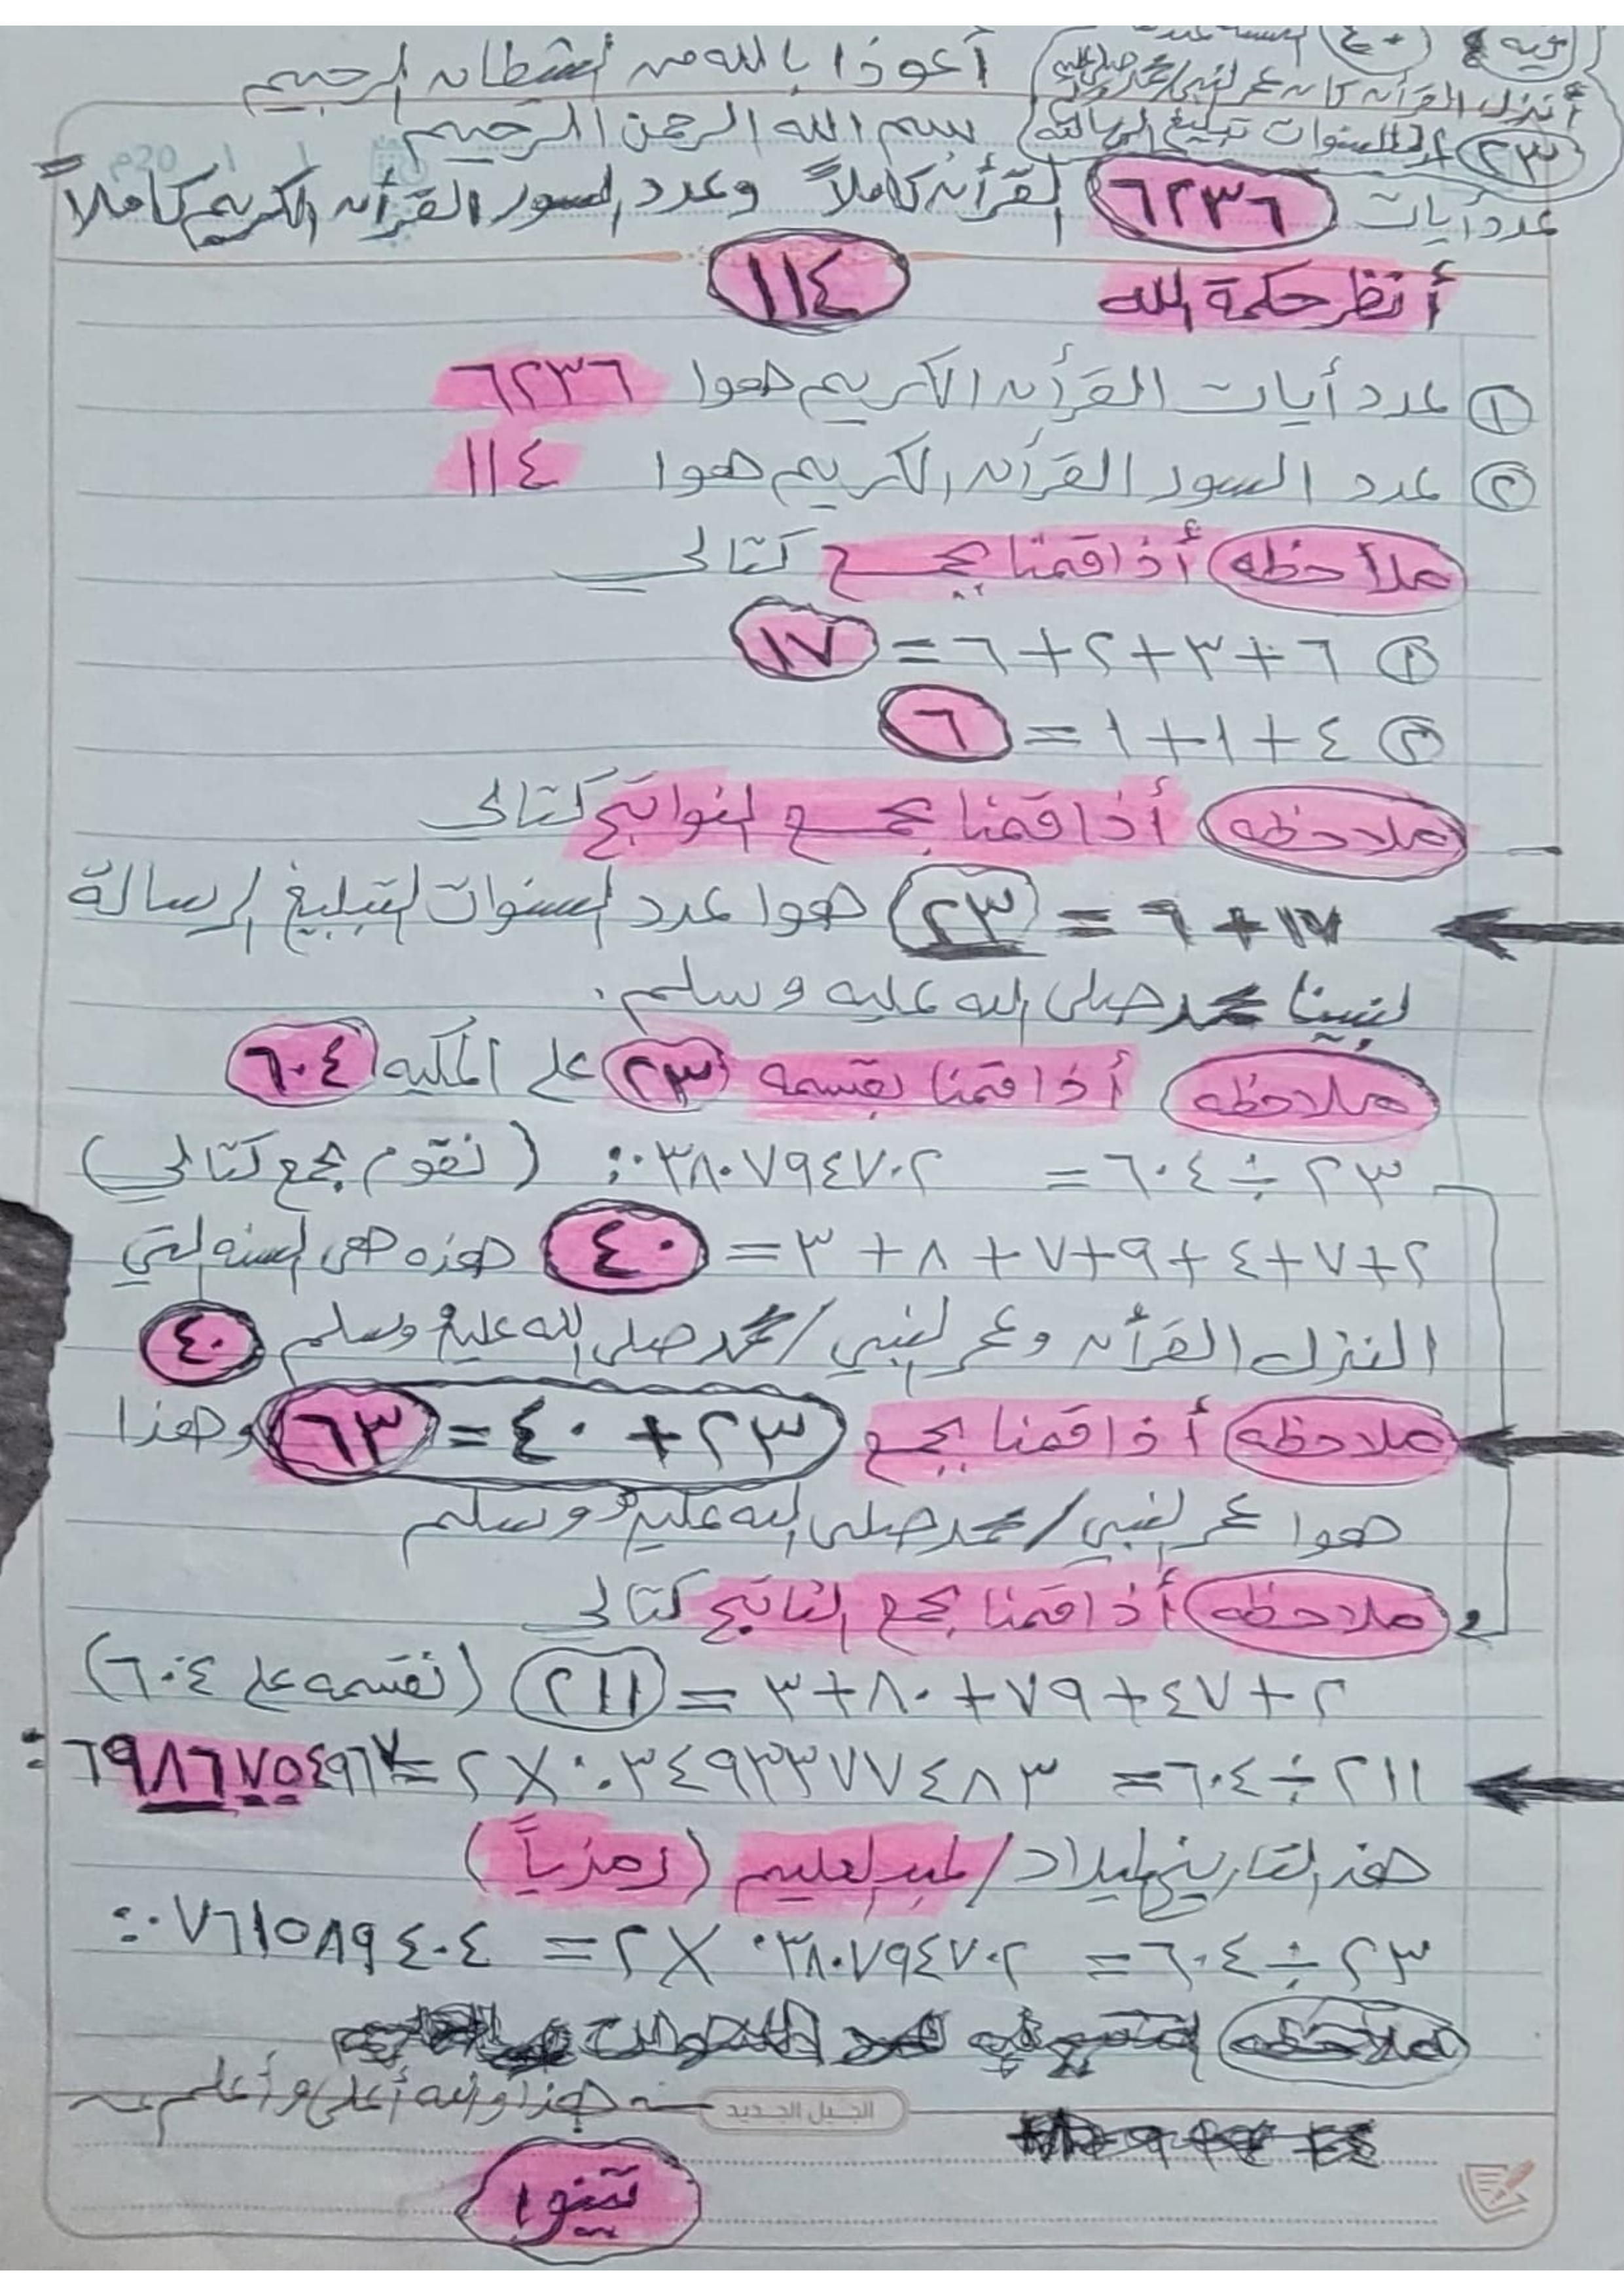 أعوذا بالله من الشيطان الرجيم
فيه ٤٠ السنة عندما
أنزل القرآن كان عمر النبي/محمد صلى الله عليه
٢٣ السنوات تبليغ الرسالة
بسم الله الرحمن الرحيم
20م / /
عدد أيات ٦٢٣٦ القرأن كاملاً وعدد السور القرأن الكريم كاملاً
١١٤
أنظر حكمة الله
① عدد أيات القرأن الكريم هوا ٦٢٣٦
② عدد السور القرأن الكريم هوا ١١٤
ملاحظه أذا قمنا بجمع كتالي
① ٦+٣+٢+٦= ١٧
② ٤+١+١= ٦
ملاحظه أذا قمنا بجمع النواتج كتالي
١٧+٦= ٢٣ هوا عدد السنوات لتبليغ الرسالة
لنبينا محمد صلى الله عليه وسلم.
ملاحظه أذا قمنا بقسمه ٢٣ على المكيه ٦٠٤
٢٣÷٦٠٤= ٠٣٨٠٧٩٤٧٠٢ (نقوم بجمع كتالي)
٢+٧+٤+٩+٧+٨+٣= ٤٠ هذه هي السنه التي
النزل القرأن وعمر النبي/محمد صلى الله عليه وسلم ٤٠
ملاحظه أذا قمنا بجمع ٢٣+٤٠=٦٣ وهذا
هوا عمر النبي/محمد صلى الله عليه وسلم
ملاحظه أذا قمنا بجمع الناتج كتالي
٢+٤٧+٧٩+٨٠+٣= ٢١١ (نقسمه على ٦٠٤)
٢١١÷٦٠٤= ٠.٣٤٩٣٣٧٧٤٨٣ ×٢= ٦٩٨٦٧٥٤٩٦٧
هذ التاريخ لميلاد/عبدالعليم (رمزياً)
٢٣÷٦٠٤= ٠٣٨٠٧٩٤٧٠٢ ×٢= ٠٧٦١٥٨٩٤٠٤
ملاحظه
هذا والله أعلى وأعلم
الجيل الجديد